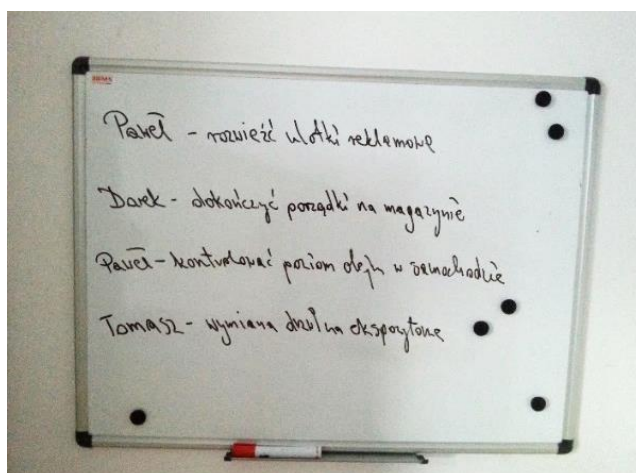 Paweł - rozwieźć ulotki reklamowe
Darek - dokończyć porządki na magazynie
Paweł - kontrolować poziom oleju w samochodzie
Tomasz - wymiana drzwi na